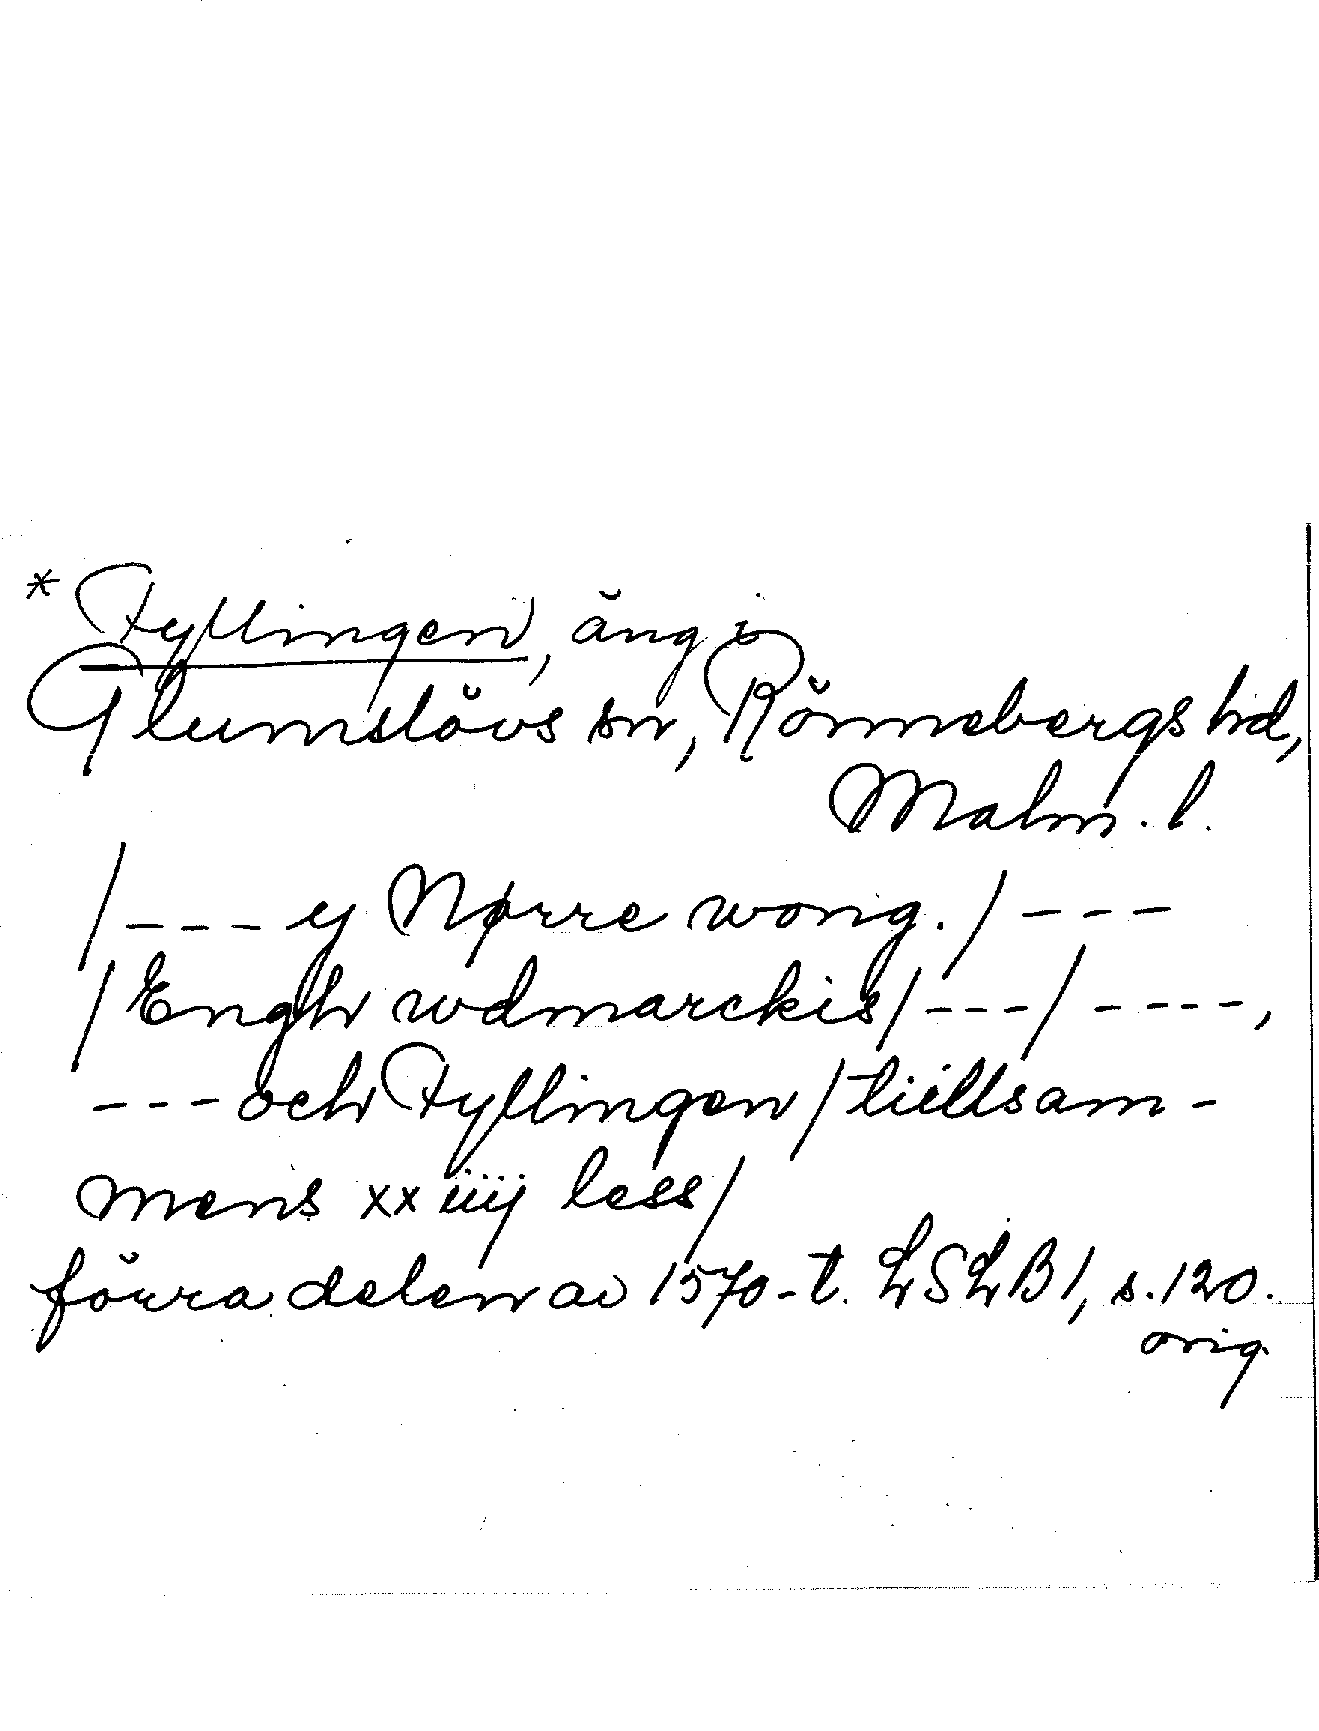 * Fyllingen, äng i
Glumslövs sn, Rönnebergs hd,
Malm. l.
/--- ey Nørre wong. / ---
/ Engh wdmarckis / --- / ----,
--- och Fyllingen / tiillsam-
mens xx iiij less /
förra delen av 1570-t. LSLB 1, s. 120.
orig.